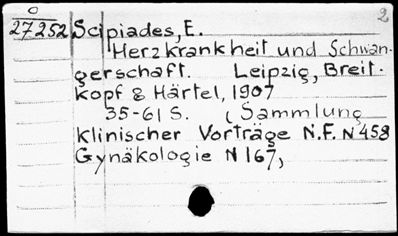 2
27252 Scipiades, E.
Herzkrankheit und Schwan-
gerschaft. Leipzig, Breit-
kopf & Härtel, 1907
35-61 S. (Sammlung
klinischer Vorträge N.F. N 458
Gynäkologie N 167,